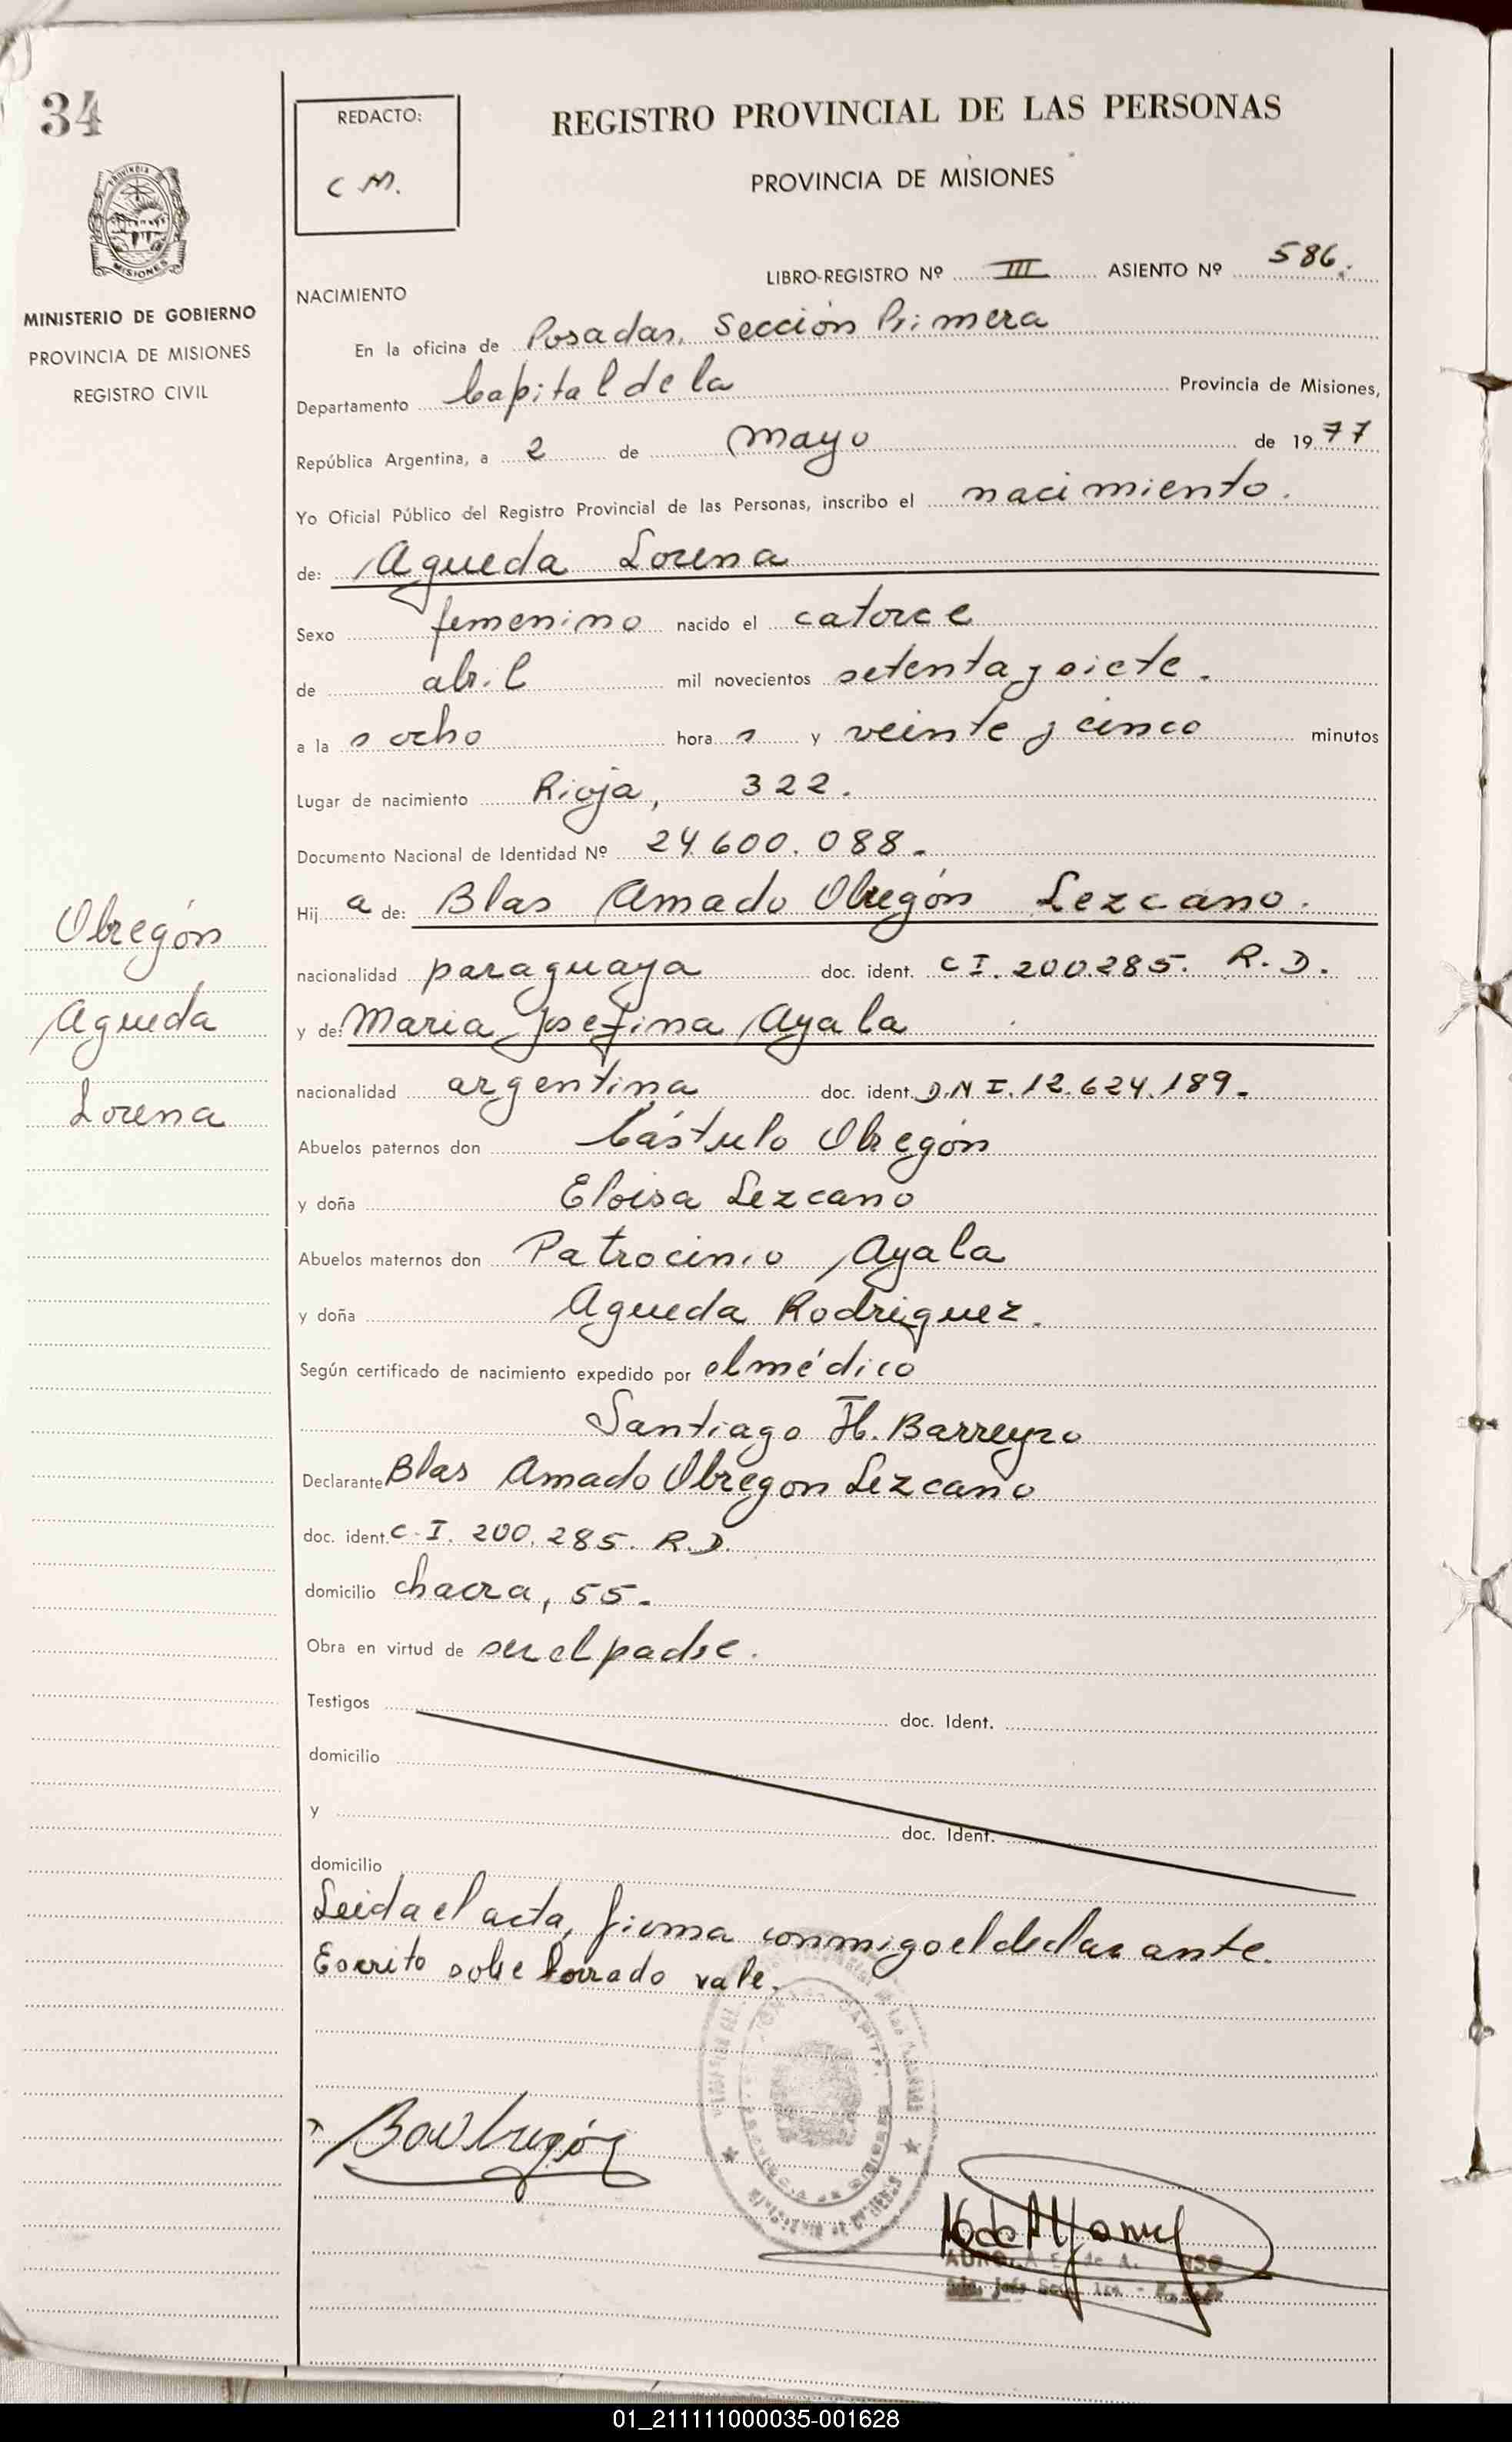 34
REDACTO:
C M.
REGISTRO PROVINCIAL DE LAS PERSONAS
PROVINCIA DE MISIONES
PROVINCIA
MISIONES
MINISTERIO DE GOBIERNO
PROVINCIA DE MISIONES
REGISTRO CIVIL
LIBRO-REGISTRO Nº III ASIENTO Nº 586.
NACIMIENTO
En la oficina de Posadas, Sección Primera
Departamento Capital de la Provincia de Misiones,
República Argentina, a 2 de mayo de 1977
Yo Oficial Público del Registro Provincial de las Personas, inscribo el nacimiento.
de: Agueda Lorena
Sexo femenino nacido el catorce
de abril mil novecientos setenta y siete.
a la s ocho hora s y veinte y cinco minutos
Lugar de nacimiento Rioja, 322.
Documento Nacional de Identidad Nº 24.600.088.
Hij a de: Blas Amado Obregón Lezcano.
nacionalidad paraguaya doc. ident. C I. 200285. R.D.
y de: Maria Josefina Ayala
nacionalidad argentina doc. ident. D.N I. 12.624.189.
Abuelos paternos don Cástulo Obregón
y doña Eloisa Lezcano
Abuelos maternos don Patrocinio Ayala
y doña Agueda Rodriguez.
Según certificado de nacimiento expedido por el médico
Santiago H. Barreyro
Declarante Blas Amado Obregon Lezcano
doc. ident. C.I. 200.285. R.D.
domicilio chacra, 55.
Obra en virtud de ser el padre.
Testigos doc. Ident.
domicilio
y doc. Ident.
domicilio
Leida el acta, firma conmigo el declarante.
Escrito sobre borrado vale.
Obregón
Agueda
Lorena
01_211111000035-001628